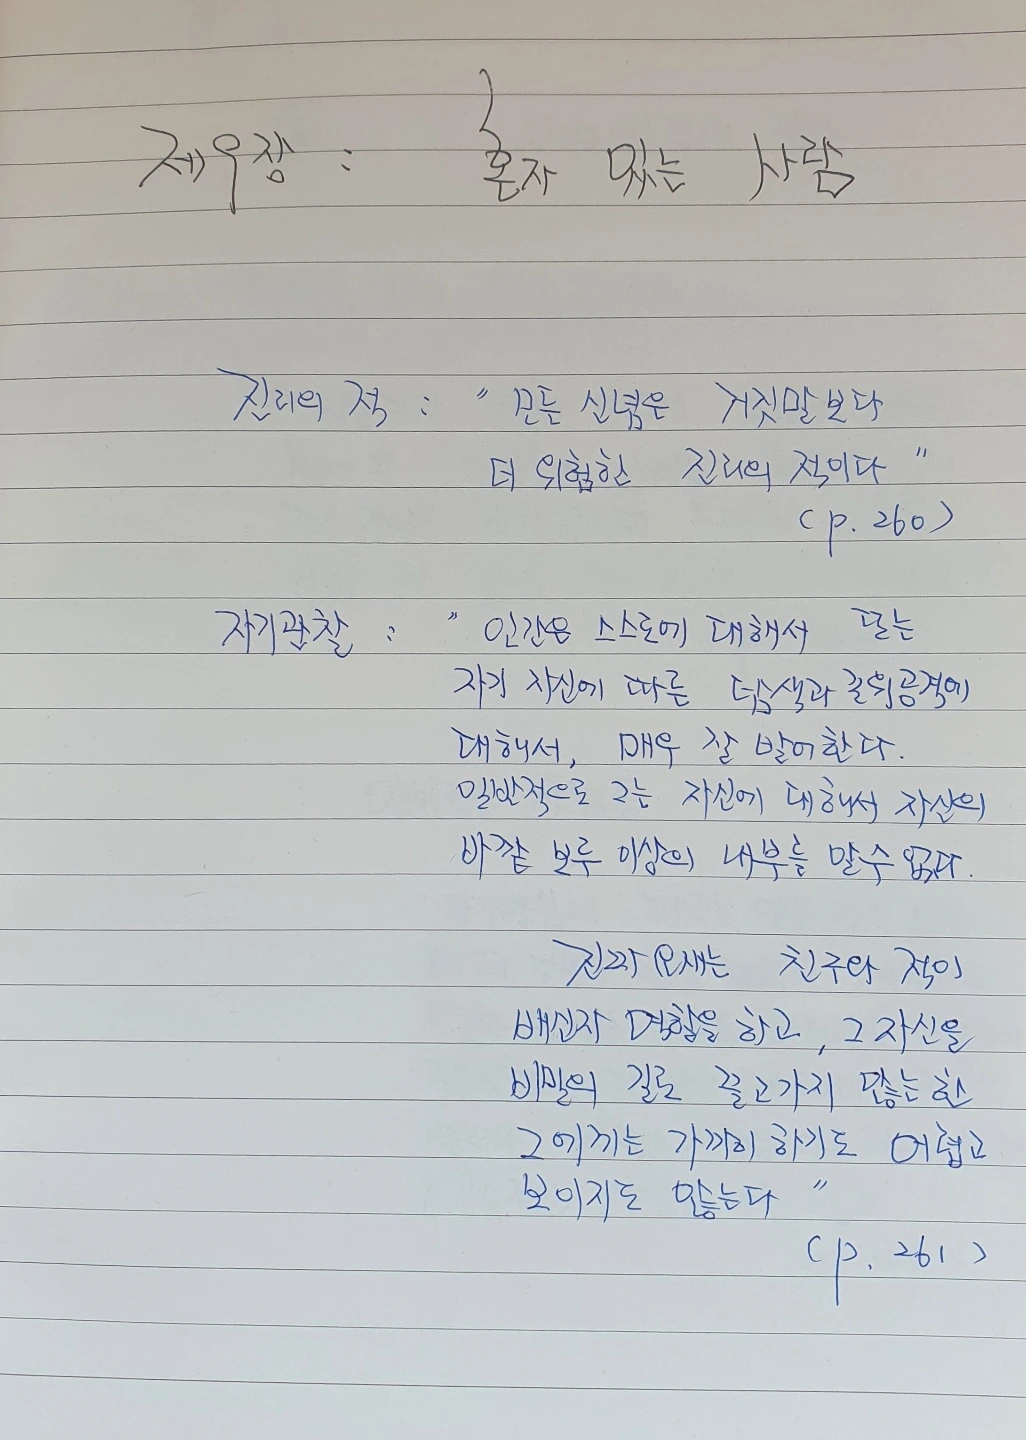 제9장 : 혼자 있는 사람
진리의 적 : " 모든 신념은 거짓말보다
더 위험한 진리의 적이다 "
(p. 260)
자기관찰 : " 인간은 스스로에 대해서 또는
자기 자신에 따른 탐색과 포위공격에
대해서, 매우 잘 방어한다.
일반적으로 그는 자신에 대해서 자신의
바깥 보루 이상의 내부를 알수 없다.
진짜 요새는 친구와 적이
배신자 역할을 하고, 그 자신을
비밀의 길로 끌고가지 않는한
그에게는 가까이 하기도 어렵고
보이지도 않는다 "
(p. 261)